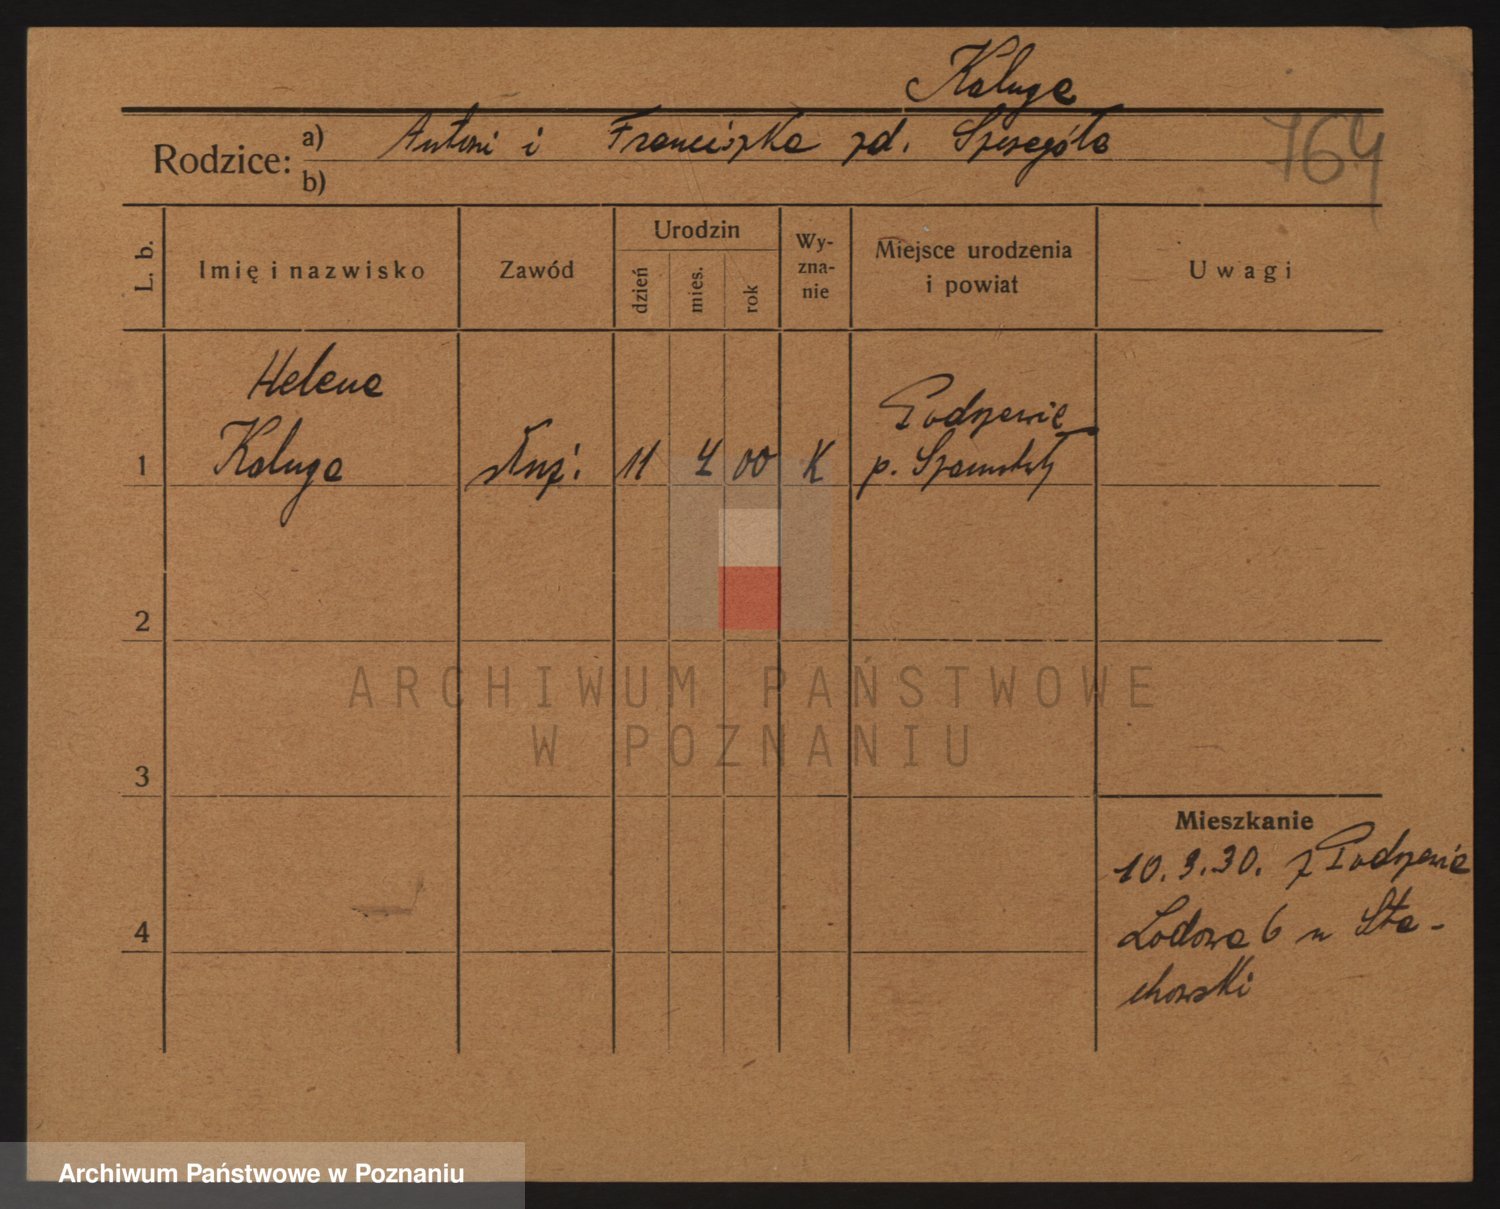 Kaluga
Rodzice: a) Antoni i Franciszka zd. Szczegóła
b)
764
L. b.
Imię i nazwisko
Zawód
Urodzin
dzień
mies.
rok
Wy-
zna-
nie
Miejsce urodzenia
i powiat
Uwagi
Helena
1 Kaluga służ. 11 4 00 K
Podrzewie
p. Szamotuły
2
3
4
Mieszkanie
10.9.30. z Podrzewie
Lodowa 6 u Sta-
chowski
ARCHIWUM PAŃSTWOWE
W POZNANIU
Archiwum Państwowe w Poznaniu